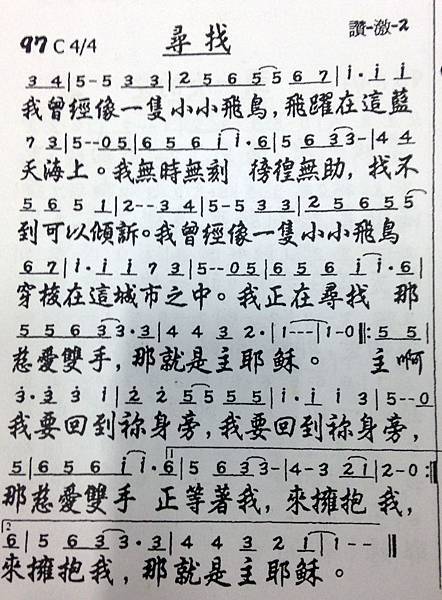 97 C 4/4 尋找 讚-激-2
3 4 | 5 - 5 3 3 | 2 5 6 5 5 6 7 | i · i i
我曾經像一隻小小飛鳥，飛躍在這藍
7 3 | 5 - - 0 5 | 6 5 6 i i · 6 | 5 6 3 3 - | 4 4
天海上。我無時無刻 徬徨無助，找不
5 6 5 1 | 2 - - 3 4 | 5 - 5 3 3 | 2 5 6 5 5
到可以傾訴。我曾經像一隻小小飛鳥
6 7 | i · i i 7 3 | 5 - - 0 5 | 6 5 6 i i · 6 |
穿梭在這城市之中。我正在尋找 那
5 5 6 3 3 · 3 | 4 4 3 2 · | 1 - - - | 1 - 0 ‖: 5 5 |
慈愛雙手，那就是主耶穌。 主啊
3 · 3 3 1 | 2 2 5 5 5 5 | i · i i 3 | 5 - - 0
我要回到祢身旁，我要回到祢身旁，
5 | 6 5 6 i i · 6 | 5 6 3 3 - | 4 - 3 2 1 | 2 - 0 :‖
那慈愛雙手 正等著我，來擁抱我，
2
6 | 5 6 3 3 · 3 | 4 4 3 2 1 | 1 - - ‖
來擁抱我，那就是主耶穌。